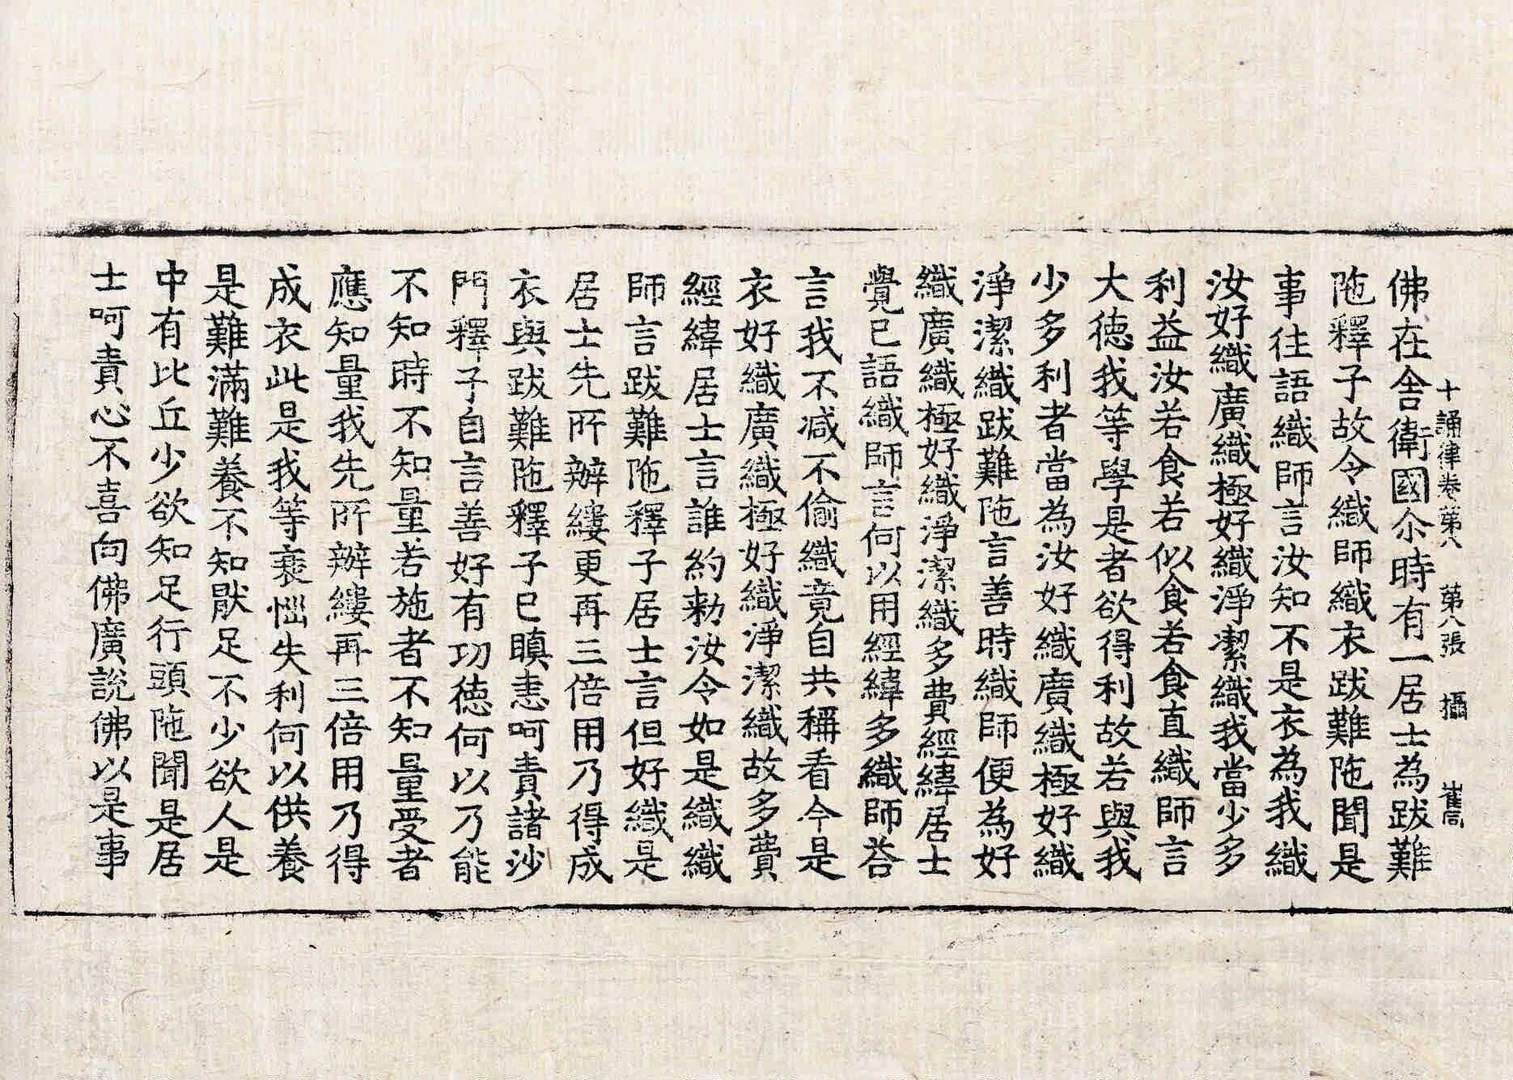 十誦律卷第八 第八張 攝 崔高
佛在舍衛國尒時有一居士為跋難
陁釋子故令織師織衣跋難陁聞是
事往語織師言汝知不是衣為我織
汝好織廣織極好織淨潔織我當少多
利益汝若食若似食若食直織師言
大德我等學是者欲得利故若與我
少多利者當為汝好織廣織極好織
淨潔織跋難陁言善時織師便為好
織廣織極好織淨潔織多費經緯居士
覺已語織師言何以用經緯多織師荅
言我不減不偷織竟自共稱看今是
衣好織廣織極好織淨潔織故多費
經緯居士言誰約勑汝令如是織織
師言跋難陁釋子居士言但好織是
居士先所辦縷更再三倍用乃得成
衣與跋難陁釋子已瞋恚呵責諸沙
門釋子自言善好有功德何以乃能
不知時不知量若施者不知量受者
應知量我先所辦縷再三倍用乃得
成衣此是我等衰惱失利何以供養
是難滿難養不知猒足不少欲人是
中有比丘少欲知足行頭陁聞是居
士呵責心不喜向佛廣說佛以是事